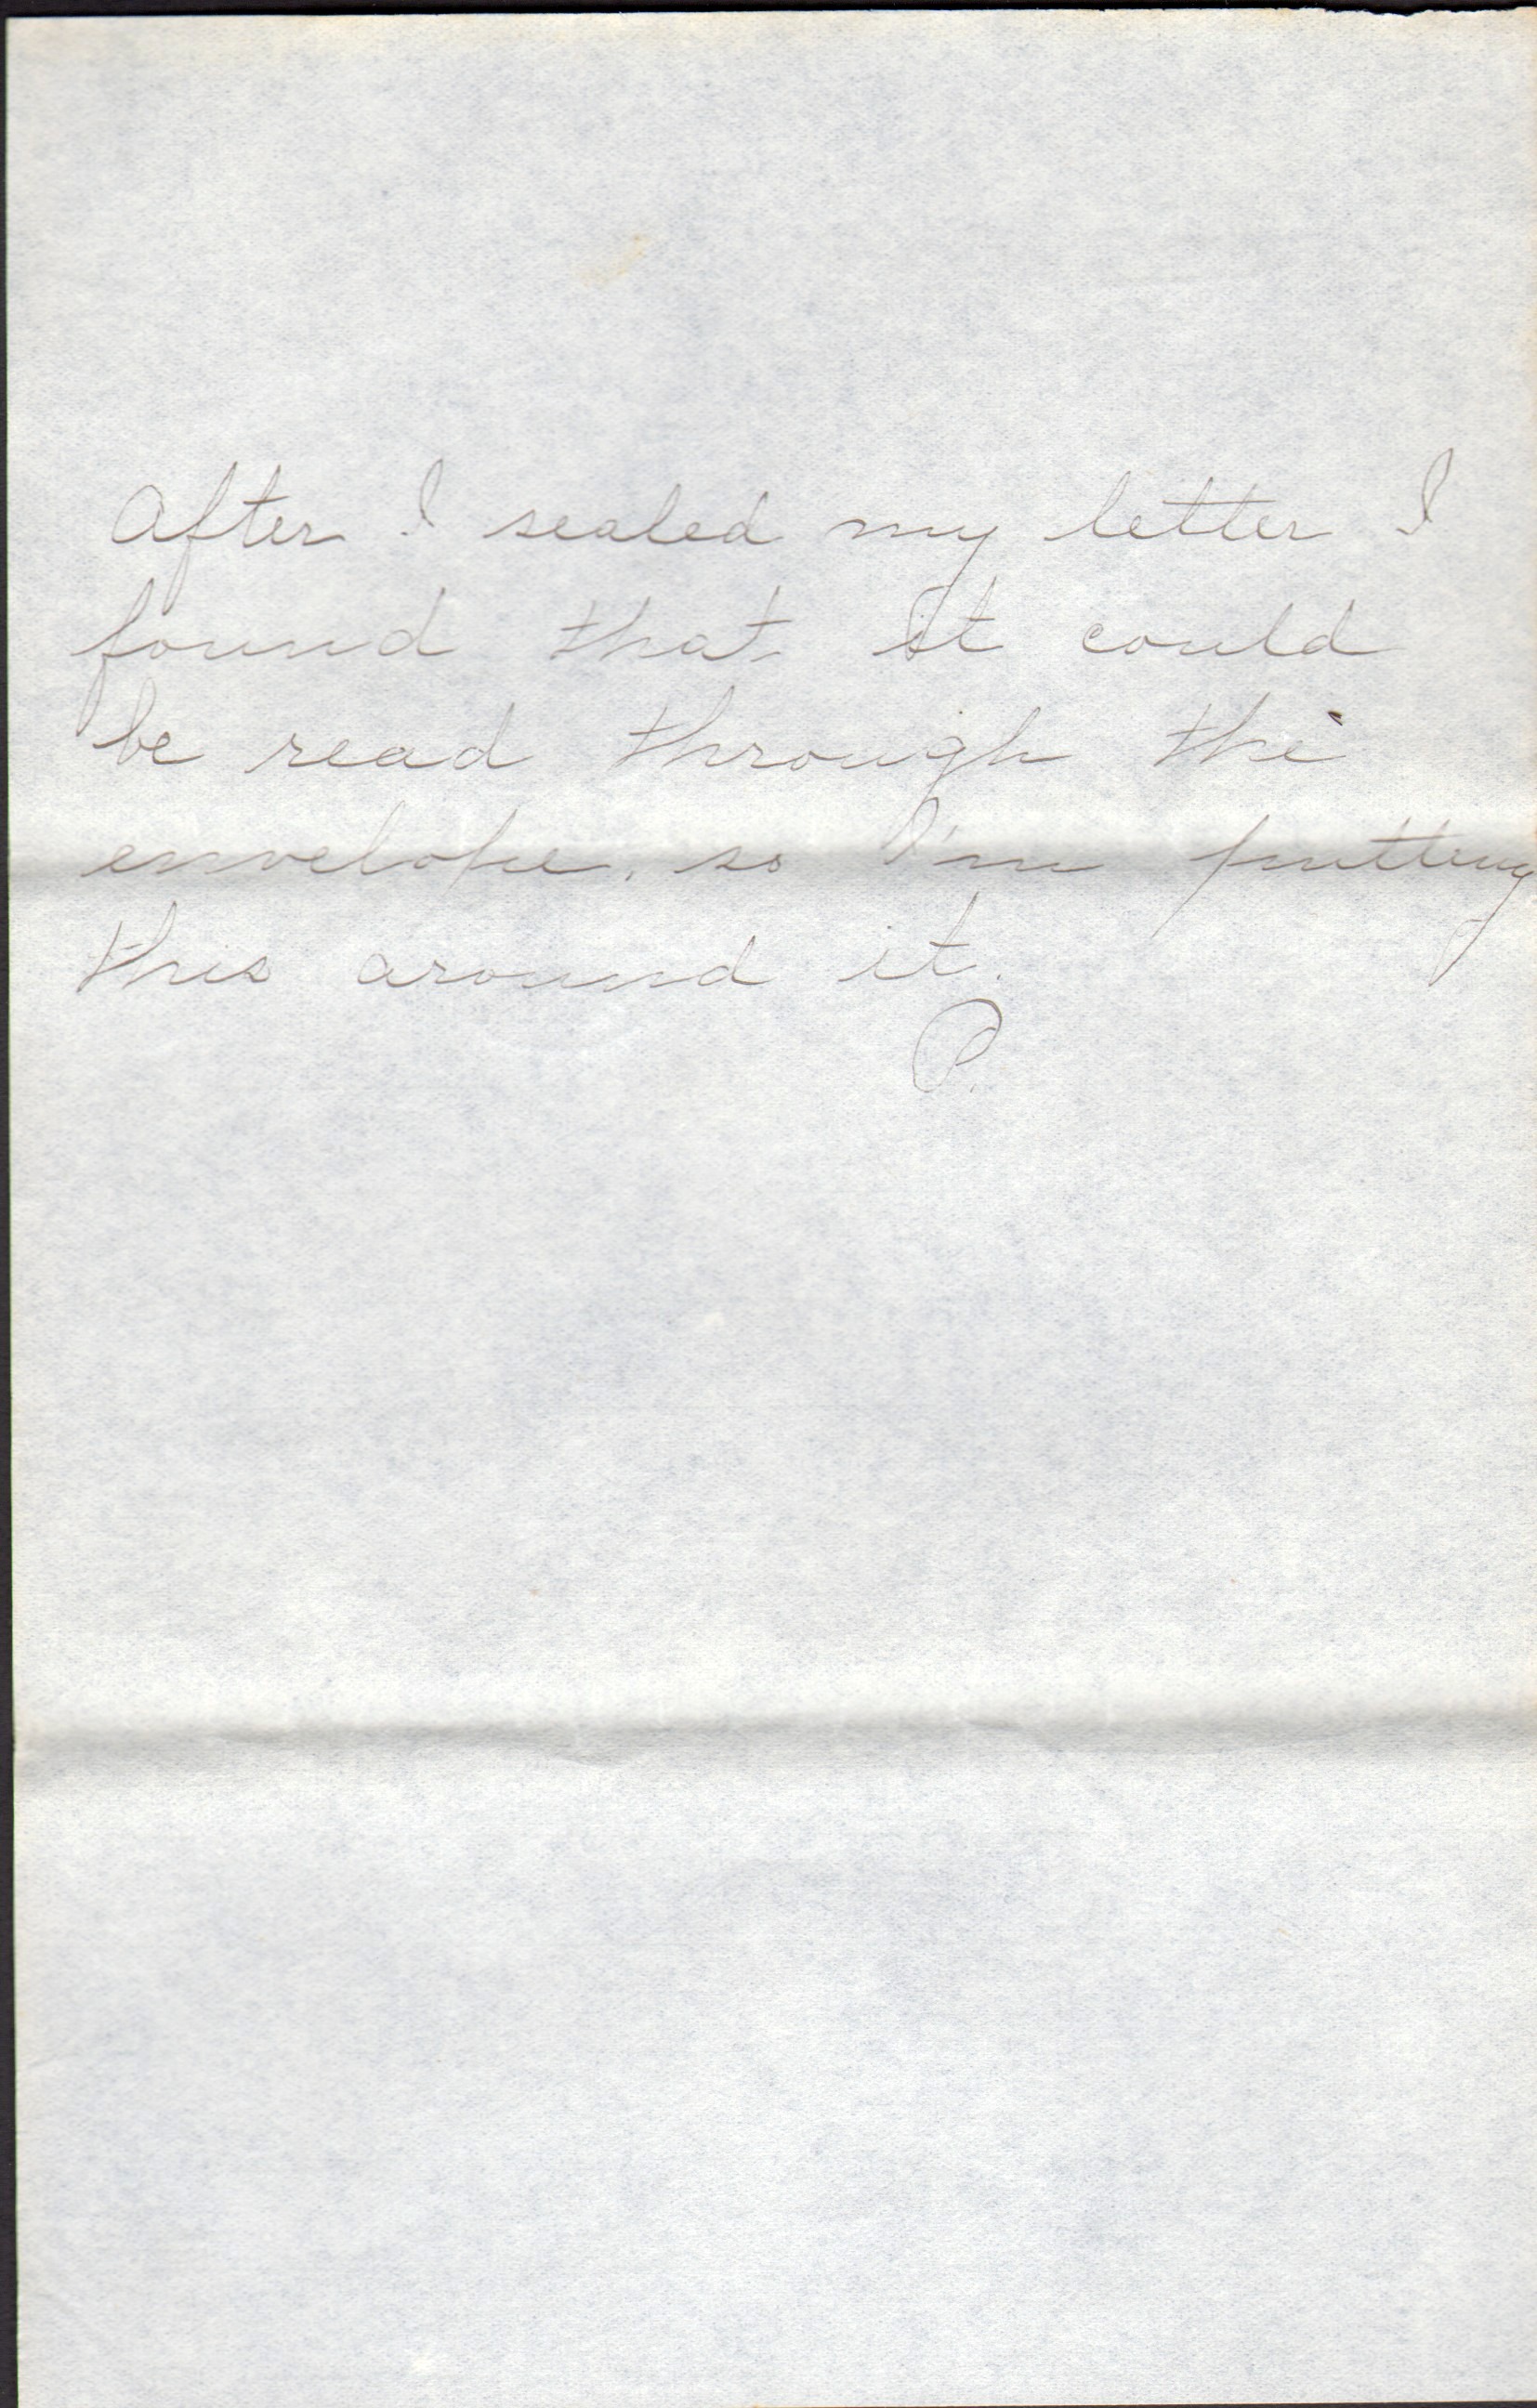 After I sealed my letter I
found that it could
be read through the
envelope, so I'm putting
this around it.
P.